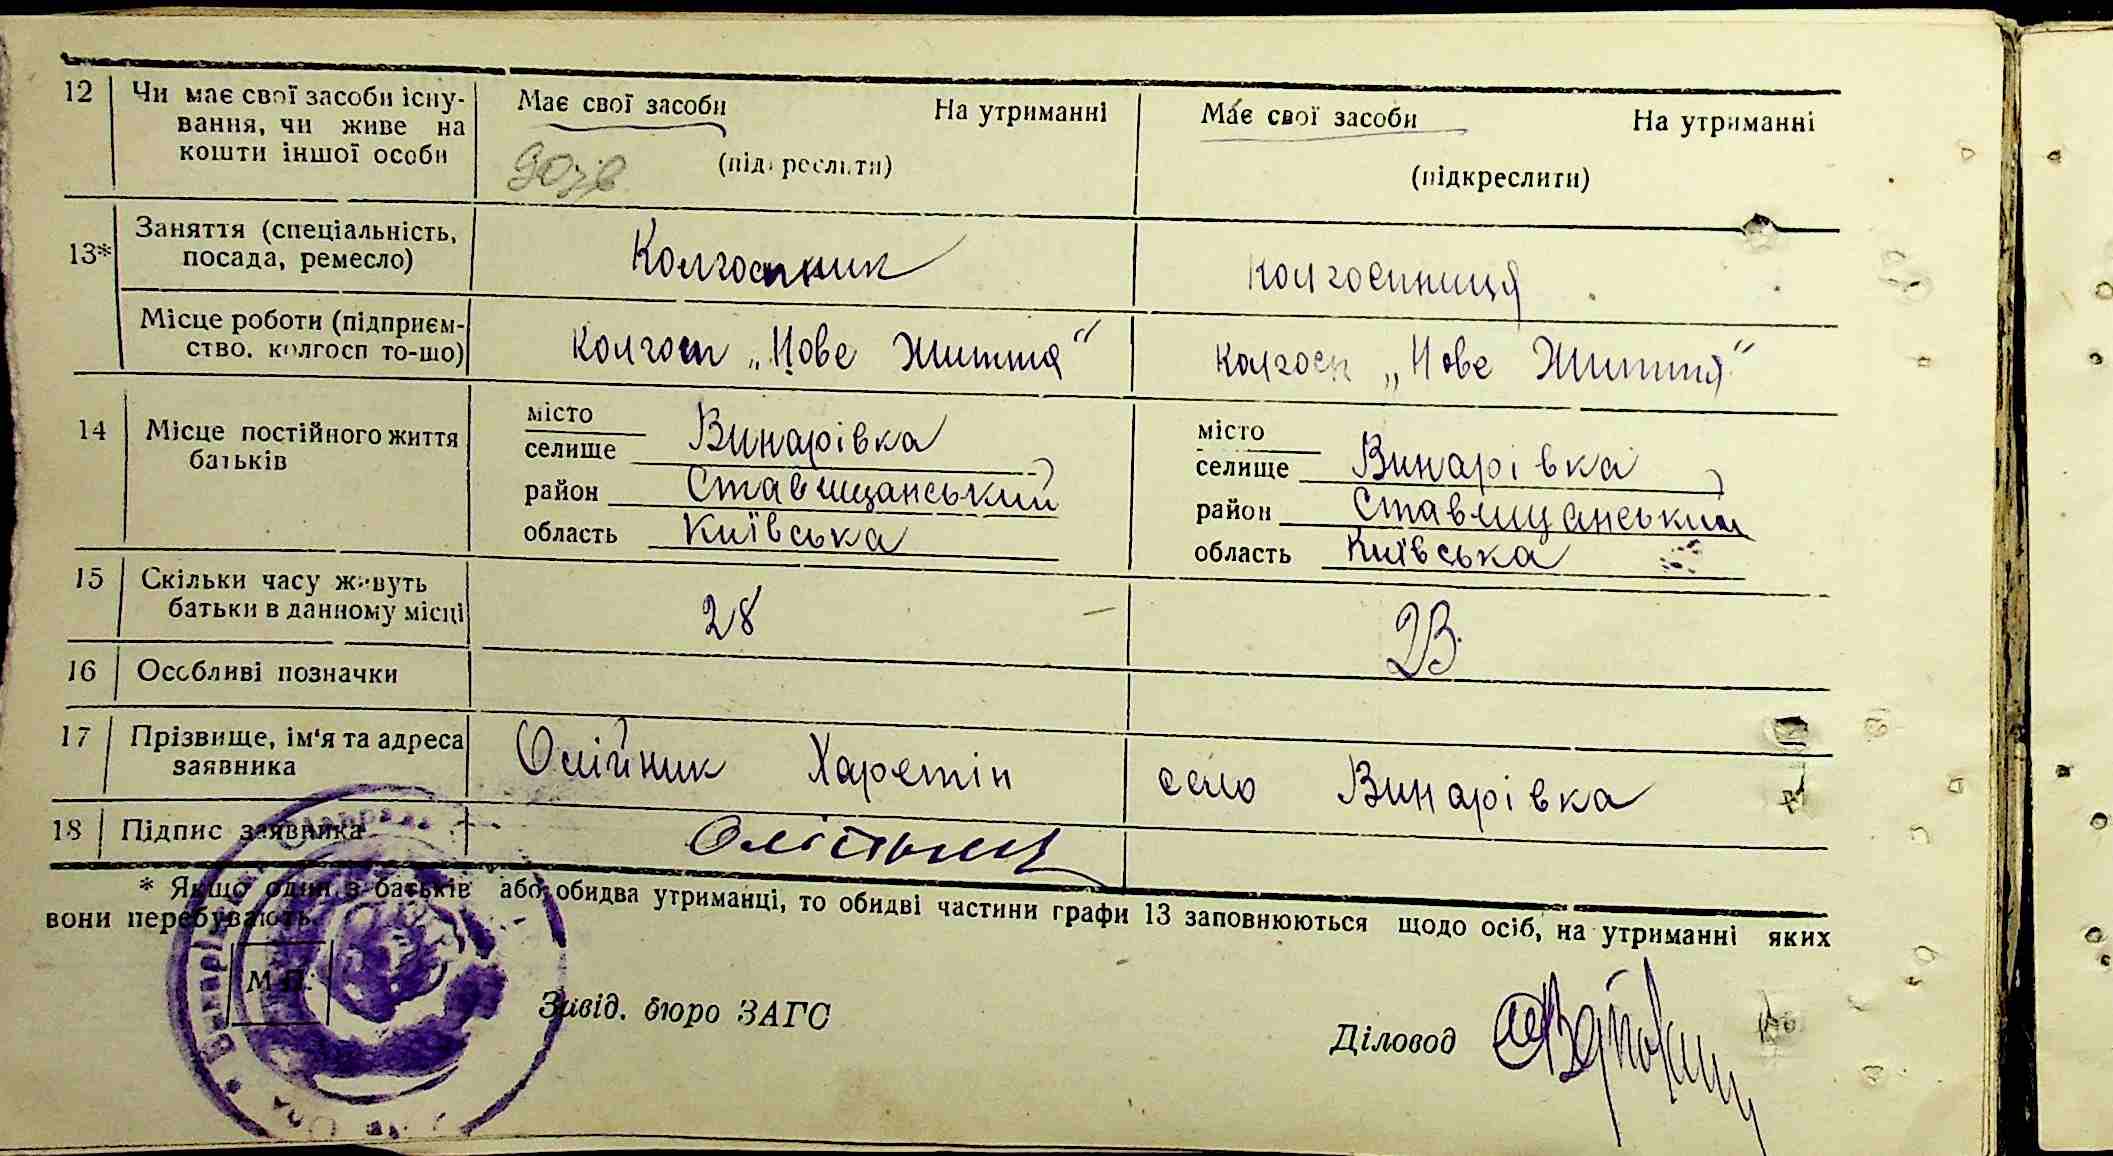 12 Чи має свої засоби існу- Має свої засоби На утриманні Має свої засоби На утриманні
вання, чи живе на
кошти іншої особи (підкреслити) (підкреслити)
13* Заняття (спеціальність, Колгоспник колгоспниця
посада, ремесло)
Місце роботи (підприєм- колгосп „Нове Життя" колгосп „Нове Життя"
ство, колгосп то-що)
14 Місце постійного життя місто Винарівка місто Винарівка
батьків селище селище
район Ставищанський район Ставищанський
область Київська область Київська
15 Скільки часу живуть 28 23
батьки в данному місці
16 Особливі позначки
17 Прізвище, ім'я та адреса Олійник Харетін село Винарівка
заявника
18 Підпис заявника Олійник
* Якщо один з батьків або обидва утриманці, то обидві частини графи 13 заповнюються щодо осіб, на утриманні яких
вони перебувають.
М.П.
Завід. бюро ЗАГС
Діловод